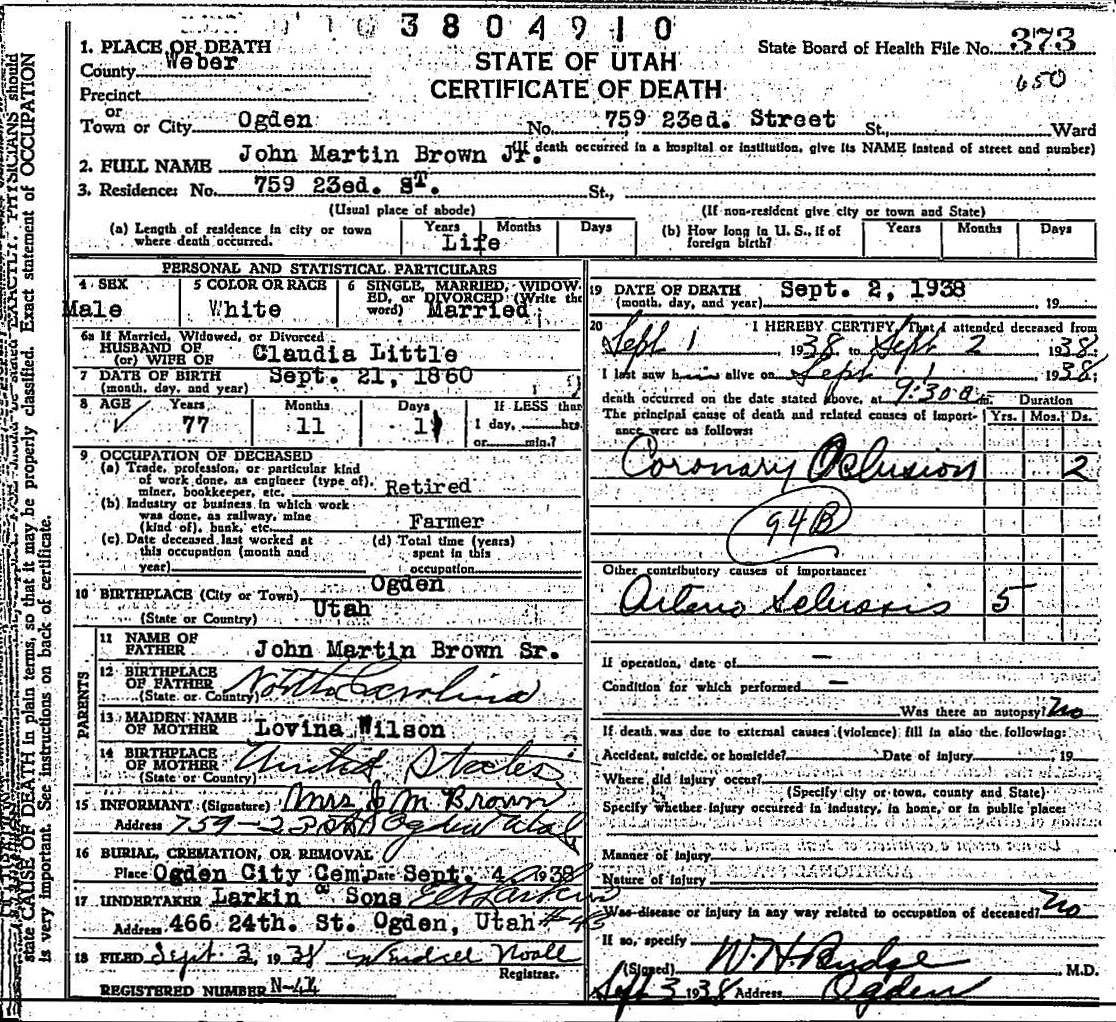 3804910
1. PLACE OF DEATH
County Weber
STATE OF UTAH
CERTIFICATE OF DEATH
State Board of Health File No. 373
650
Precinct
or
Town or City Ogden No. 759 23ed. Street St., Ward
(If death occurred in a hospital or institution, give its NAME instead of street and number)
2. FULL NAME John Martin Brown Jr.
3. Residence: No. 759 23ed. ST. St.,
(Usual place of abode) (If non-resident give city or town and State)
(a) Length of residence in city or town where death occurred. Years Months Days
Life
(b) How long in U. S., if of foreign birth? Years Months Days
PERSONAL AND STATISTICAL PARTICULARS
4 SEX 5 COLOR OR RACE 6 SINGLE, MARRIED, WIDOWED, or DIVORCED (Write the word)
Male White Married
6a If Married, Widowed, or Divorced
HUSBAND OF
(or) WIFE OF Claudia Little
7 DATE OF BIRTH
(month, day, and year) Sept. 21, 1860
8 AGE Years Months Days If LESS than
77 11 1 day, hrs.
or min.?
9 OCCUPATION OF DECEASED
(a) Trade, profession, or particular kind
of work done, as engineer (type of),
miner, bookkeeper, etc. Retired
(b) Industry or business in which work
was done, as railway, mine
(kind of), bank, etc. Farmer
(c) Date deceased last worked at
this occupation (month and
year)
(d) Total time (years)
spent in this
occupation
10 BIRTHPLACE (City or Town) Ogden
Utah
(State or Country)
PARENTS
11 NAME OF
FATHER John Martin Brown Sr.
12 BIRTHPLACE
OF FATHER North Carolina
(State or Country)
13 MAIDEN NAME
OF MOTHER Lovina Wilson
14 BIRTHPLACE
OF MOTHER United States
(State or Country)
15 INFORMANT (Signature) Mrs J M Brown
Address 759-23 Ogden Utah
16 BURIAL, CREMATION, OR REMOVAL
Place Ogden City Cem. Date Sept. 4, 1938
17 UNDERTAKER Larkin & Sons
Address 466 24th. St. Ogden, Utah
18 FILED Sept. 3, 1938 Wendell Noall
Registrar.
REGISTERED NUMBER
19 DATE OF DEATH
(month, day, and year) Sept. 2, 1938 19
20 I HEREBY CERTIFY, That I attended deceased from
Sept 1, 1938 to Sept 2 1938;
I last saw him alive on Sept 1 1938;
death occurred on the date stated above, at 9:30 a m.
The principal cause of death and related causes of importance were as follows:
Duration
Yrs. Mos. Ds.
Coronary Oclusion 2
94B
Other contributory causes of importance:
Arterio Sclerosis 5
If operation, date of —
Condition for which performed —
Was there an autopsy? No
If death was due to external causes (violence) fill in also the following:
Accident, suicide, or homicide? Date of injury , 19
Where did injury occur?
(Specify city or town, county and State)
Specify whether injury occurred in industry, in home, or in public place:
Manner of injury
Nature of injury
Was disease or injury in any way related to occupation of deceased? No
If so, specify
(Signed) W. H. Budge M.D.
Sept 3 1938 Address Ogden
PHYSICIANS should
state CAUSE OF DEATH in plain terms, so that it may be properly classified. Exact statement of OCCUPATION
is very important. See instructions on back of certificate.